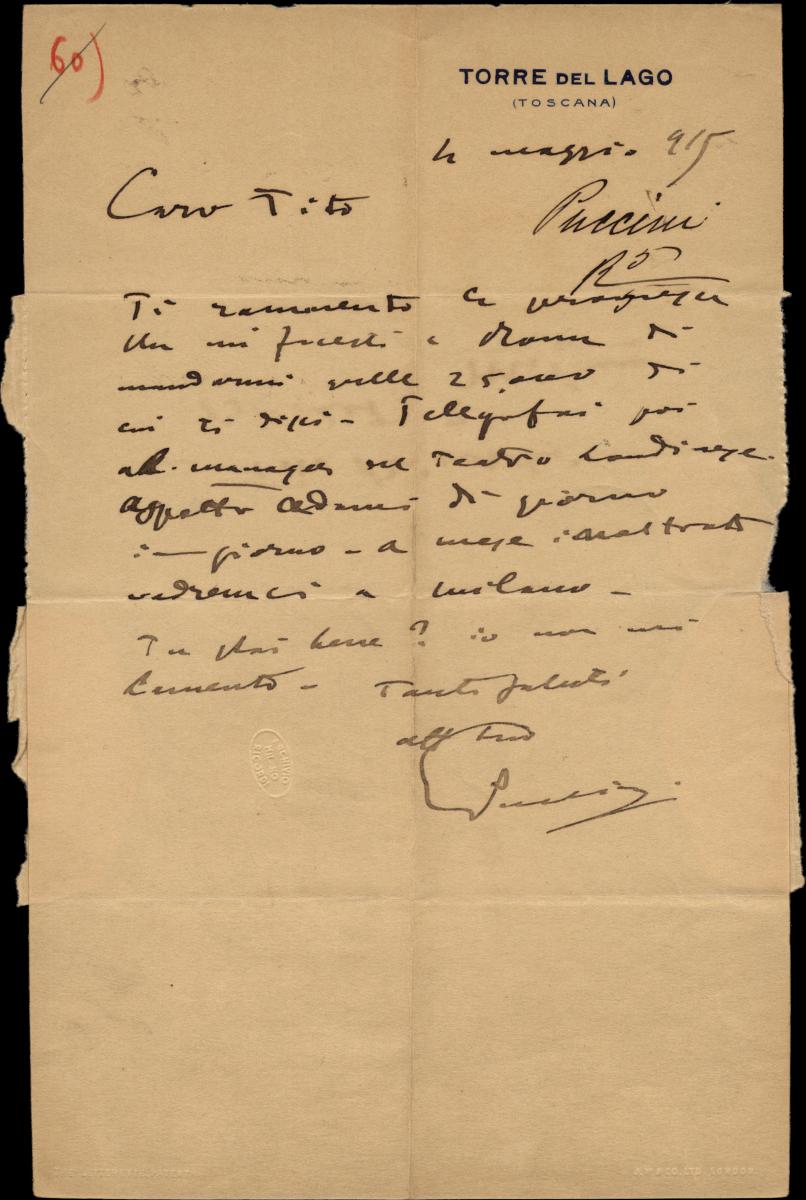 60)
TORRE DEL LAGO
(TOSCANA)
4 maggio 915
Caro Tito
Puccini
R5
Ti rammento la
che mi facesti a Roma di
mandarmi quelle 25.000 di
cui ti dissi - Telegrafai poi
al manager del Teatro
Aspetto Adami di giorno
in giorno - a mese inoltrato
vedremci a Milano -
Tu stai bene? io non mi
lamento - Tanti saluti
aff tuo
Puccini
ARCHIVIO
RICORDI